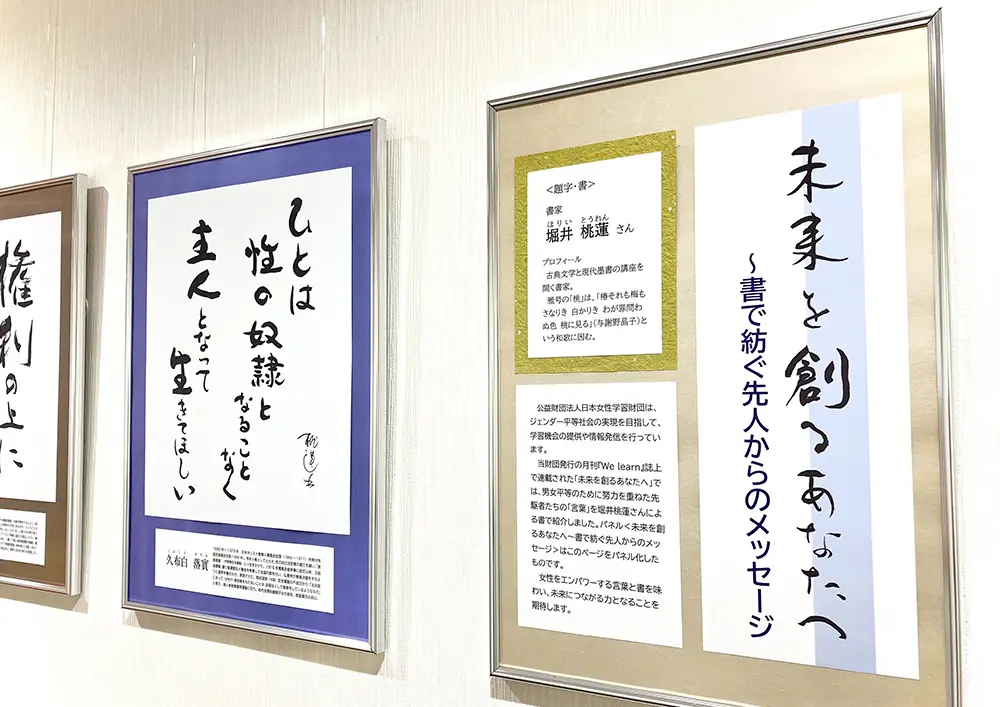 未来を創るあなたへ
～書で紡ぐ先人からのメッセージ
＜題字・書＞
書家
ほりい とうれん
堀井 桃蓮 さん
プロフィール
古典文学と現代墨書の講座を
開く書家。
雅号の「桃」は、「椿それも梅も
さなりき 白かりき わが罪問わ
ぬ色 桃に見る」（与謝野晶子）と
いう和歌に因む。
公益財団法人日本女性学習財団は、
ジェンダー平等社会の実現を目指して、
学習機会の提供や情報発信を行ってい
ます。
当財団発行の月刊『We learn』誌上
で連載された「未来を創るあなたへ」で
は、男女平等のために努力を重ねた先
駆者たちの「言葉」を堀井桃蓮さんによ
る書で紹介しました。パネル＜未来を創
るあなたへ～書で紡ぐ先人からのメッ
セージ＞はこのページをパネル化した
ものです。
女性をエンパワーする言葉と書を味
わい、未来につながる力となることを
期待します。
ひとは
性の奴隷と
なること
なく
主人となって
生きてほしい
久布白 落實
権利の上に